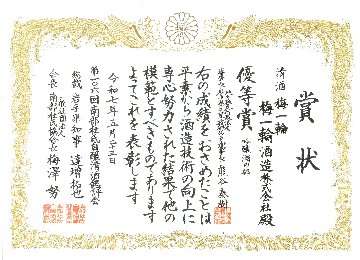 賞状
清酒 梅一輪
梅一輪酒造株式会社殿
優等賞 吟醸酒の部
右の成績をおさめたことは
平素から酒造技術の向上に
専心努力された結果で他の
模範とすべきものであります
よってこれを表彰します
令和七年三月二十五日
第一〇六回南部杜氏自醸清酒鑑評会
総裁 岩手県知事 達増拓也
一般社団法人
会長 南部杜氏協会長 梅澤 努